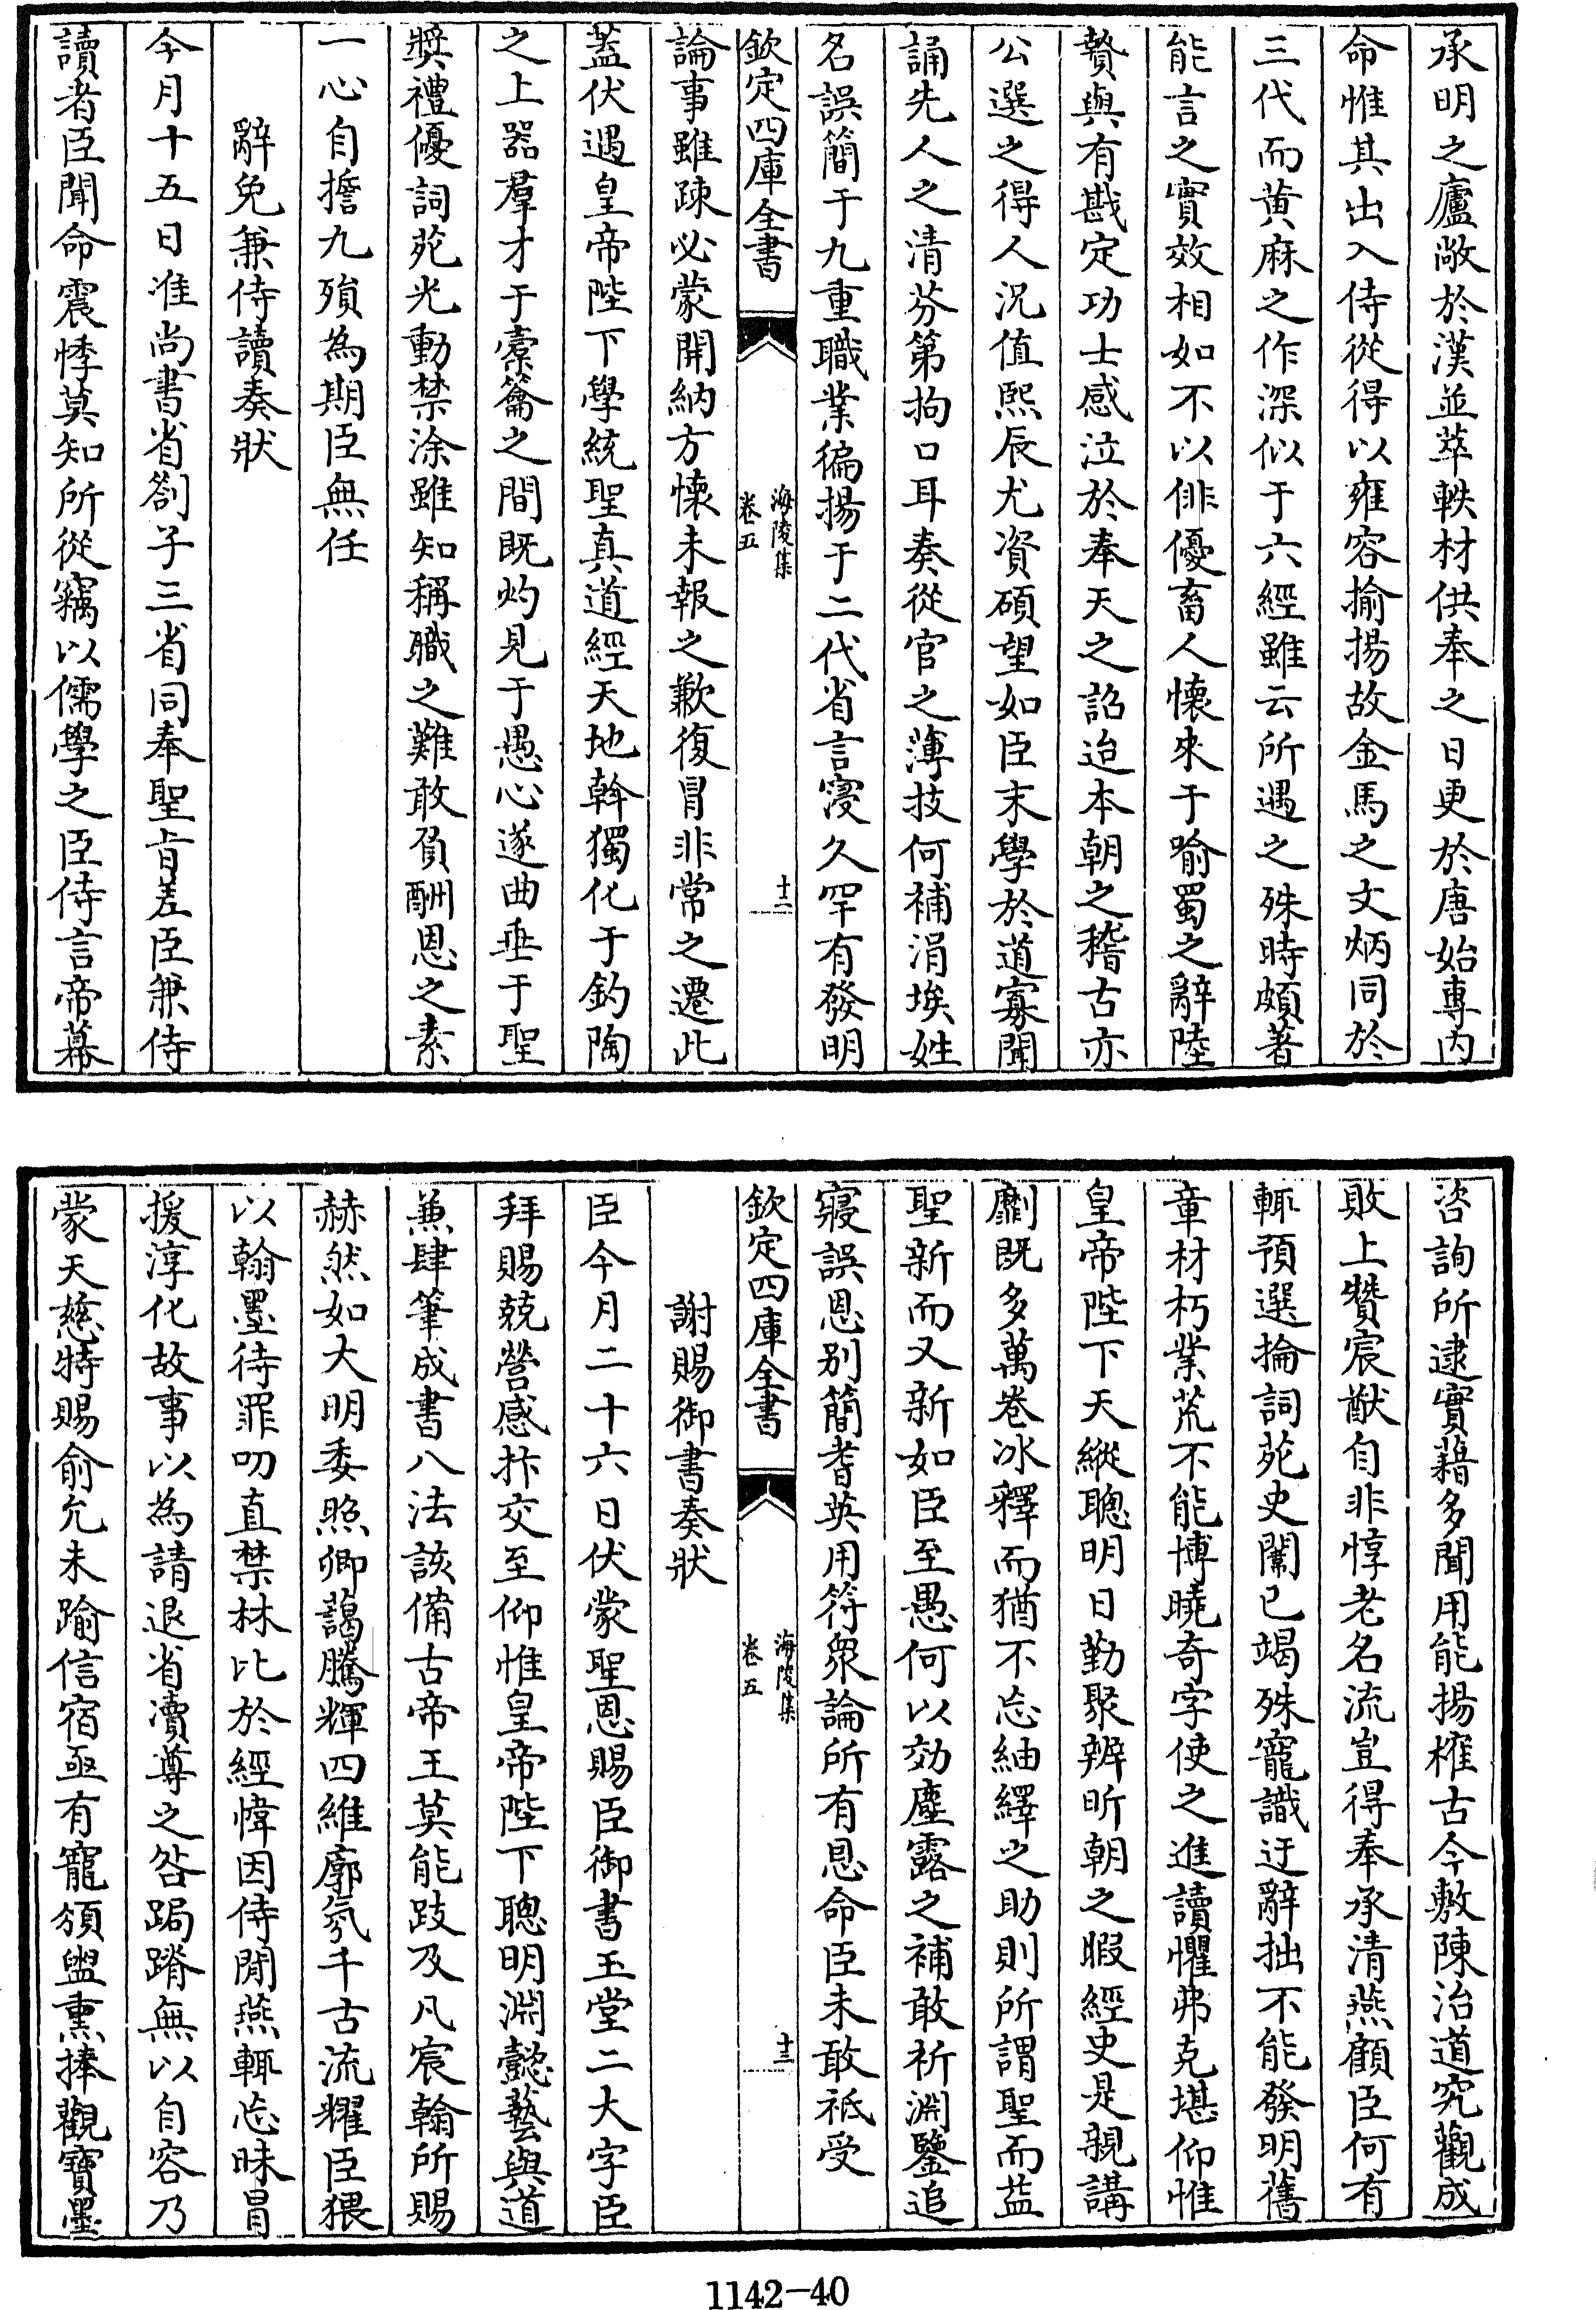 承明之廬敞於漢並萃軼材供奉之日更於唐始專内
命惟其出入侍從得以雍容揄揚故金馬之文炳同於
三代而黄麻之作深似于六經雖云所遇之殊時頗著
能言之實效相如不以俳優畜人懷來于喻蜀之辭陸
贄與有戡定功士感泣於奉天之詔迨本朝之稽古亦
公選之得人況值熙辰尤資碩望如臣末學於道寡聞
誦先人之清芬第拘口耳奏從官之薄技何補涓埃姓
名誤簡于九重職業徧揚于二代省言寖久罕有發明
欽定四庫全書 海陵集 卷五 十二
論事雖踈必蒙開納方懐未報之歉復冒非常之遷此
蓋伏遇皇帝陛下學統聖真道經天地斡獨化于鈞陶
之上器羣才于槖籥之間既灼見于愚心遂曲垂于聖
奬禮優詞苑光動禁涂雖知稱職之難敢負酬恩之素
一心自擔九殞為期臣無任
辭免兼侍讀奏狀
今月十五日准尚書省劄子三省同奉聖旨差臣兼侍
讀者臣聞命震悸莫知所從竊以儒學之臣侍言帝幕
咨詢所逮實藉多聞用能揚搉古今敷陳治道究觀成
敗上贊宸猷自非惇老名流豈得奉承清燕顧臣何有
輒預選掄詞苑史闈已竭殊寵識迂辭拙不能發明舊
章材朽業荒不能博曉奇字使之進讀懼弗克堪仰惟
皇帝陛下天縱聰明日勤聚辨昕朝之暇經史是親講
劘既多萬卷冰釋而猶不忘紬繹之助則所謂聖而益
聖新而又新如臣至愚何以効塵露之補敢祈淵鑒追
寢誤恩别簡耆英用符衆論所有恩命臣未敢祗受
欽定四庫全書 海陵集 卷五 十三
謝賜御書奏狀
臣今月二十六日伏蒙聖恩賜臣御書玉堂二大字臣
拜賜兢營感抃交至仰惟皇帝陛下聰明淵懿藝與道
兼肆筆成書八法該備古帝王莫能跂及凡宸翰所賜
赫然如大明委照卿藹騰輝四維廓氛千古流耀臣猥
以翰墨待罪叨直禁林比於經幃因侍閒燕輒忘昧冒
援淳化故事以為請退省瀆尊之咎跼蹐無以自容乃
蒙天慈特賜俞允未踰信宿亟有寵頒盥熏捧觀寶墨
1142-40